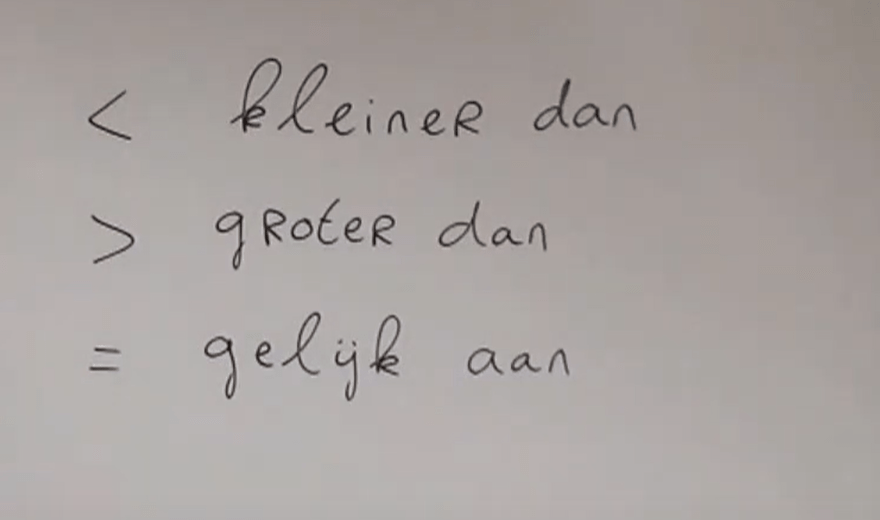 < kleiner dan
> groter dan
= gelijk aan